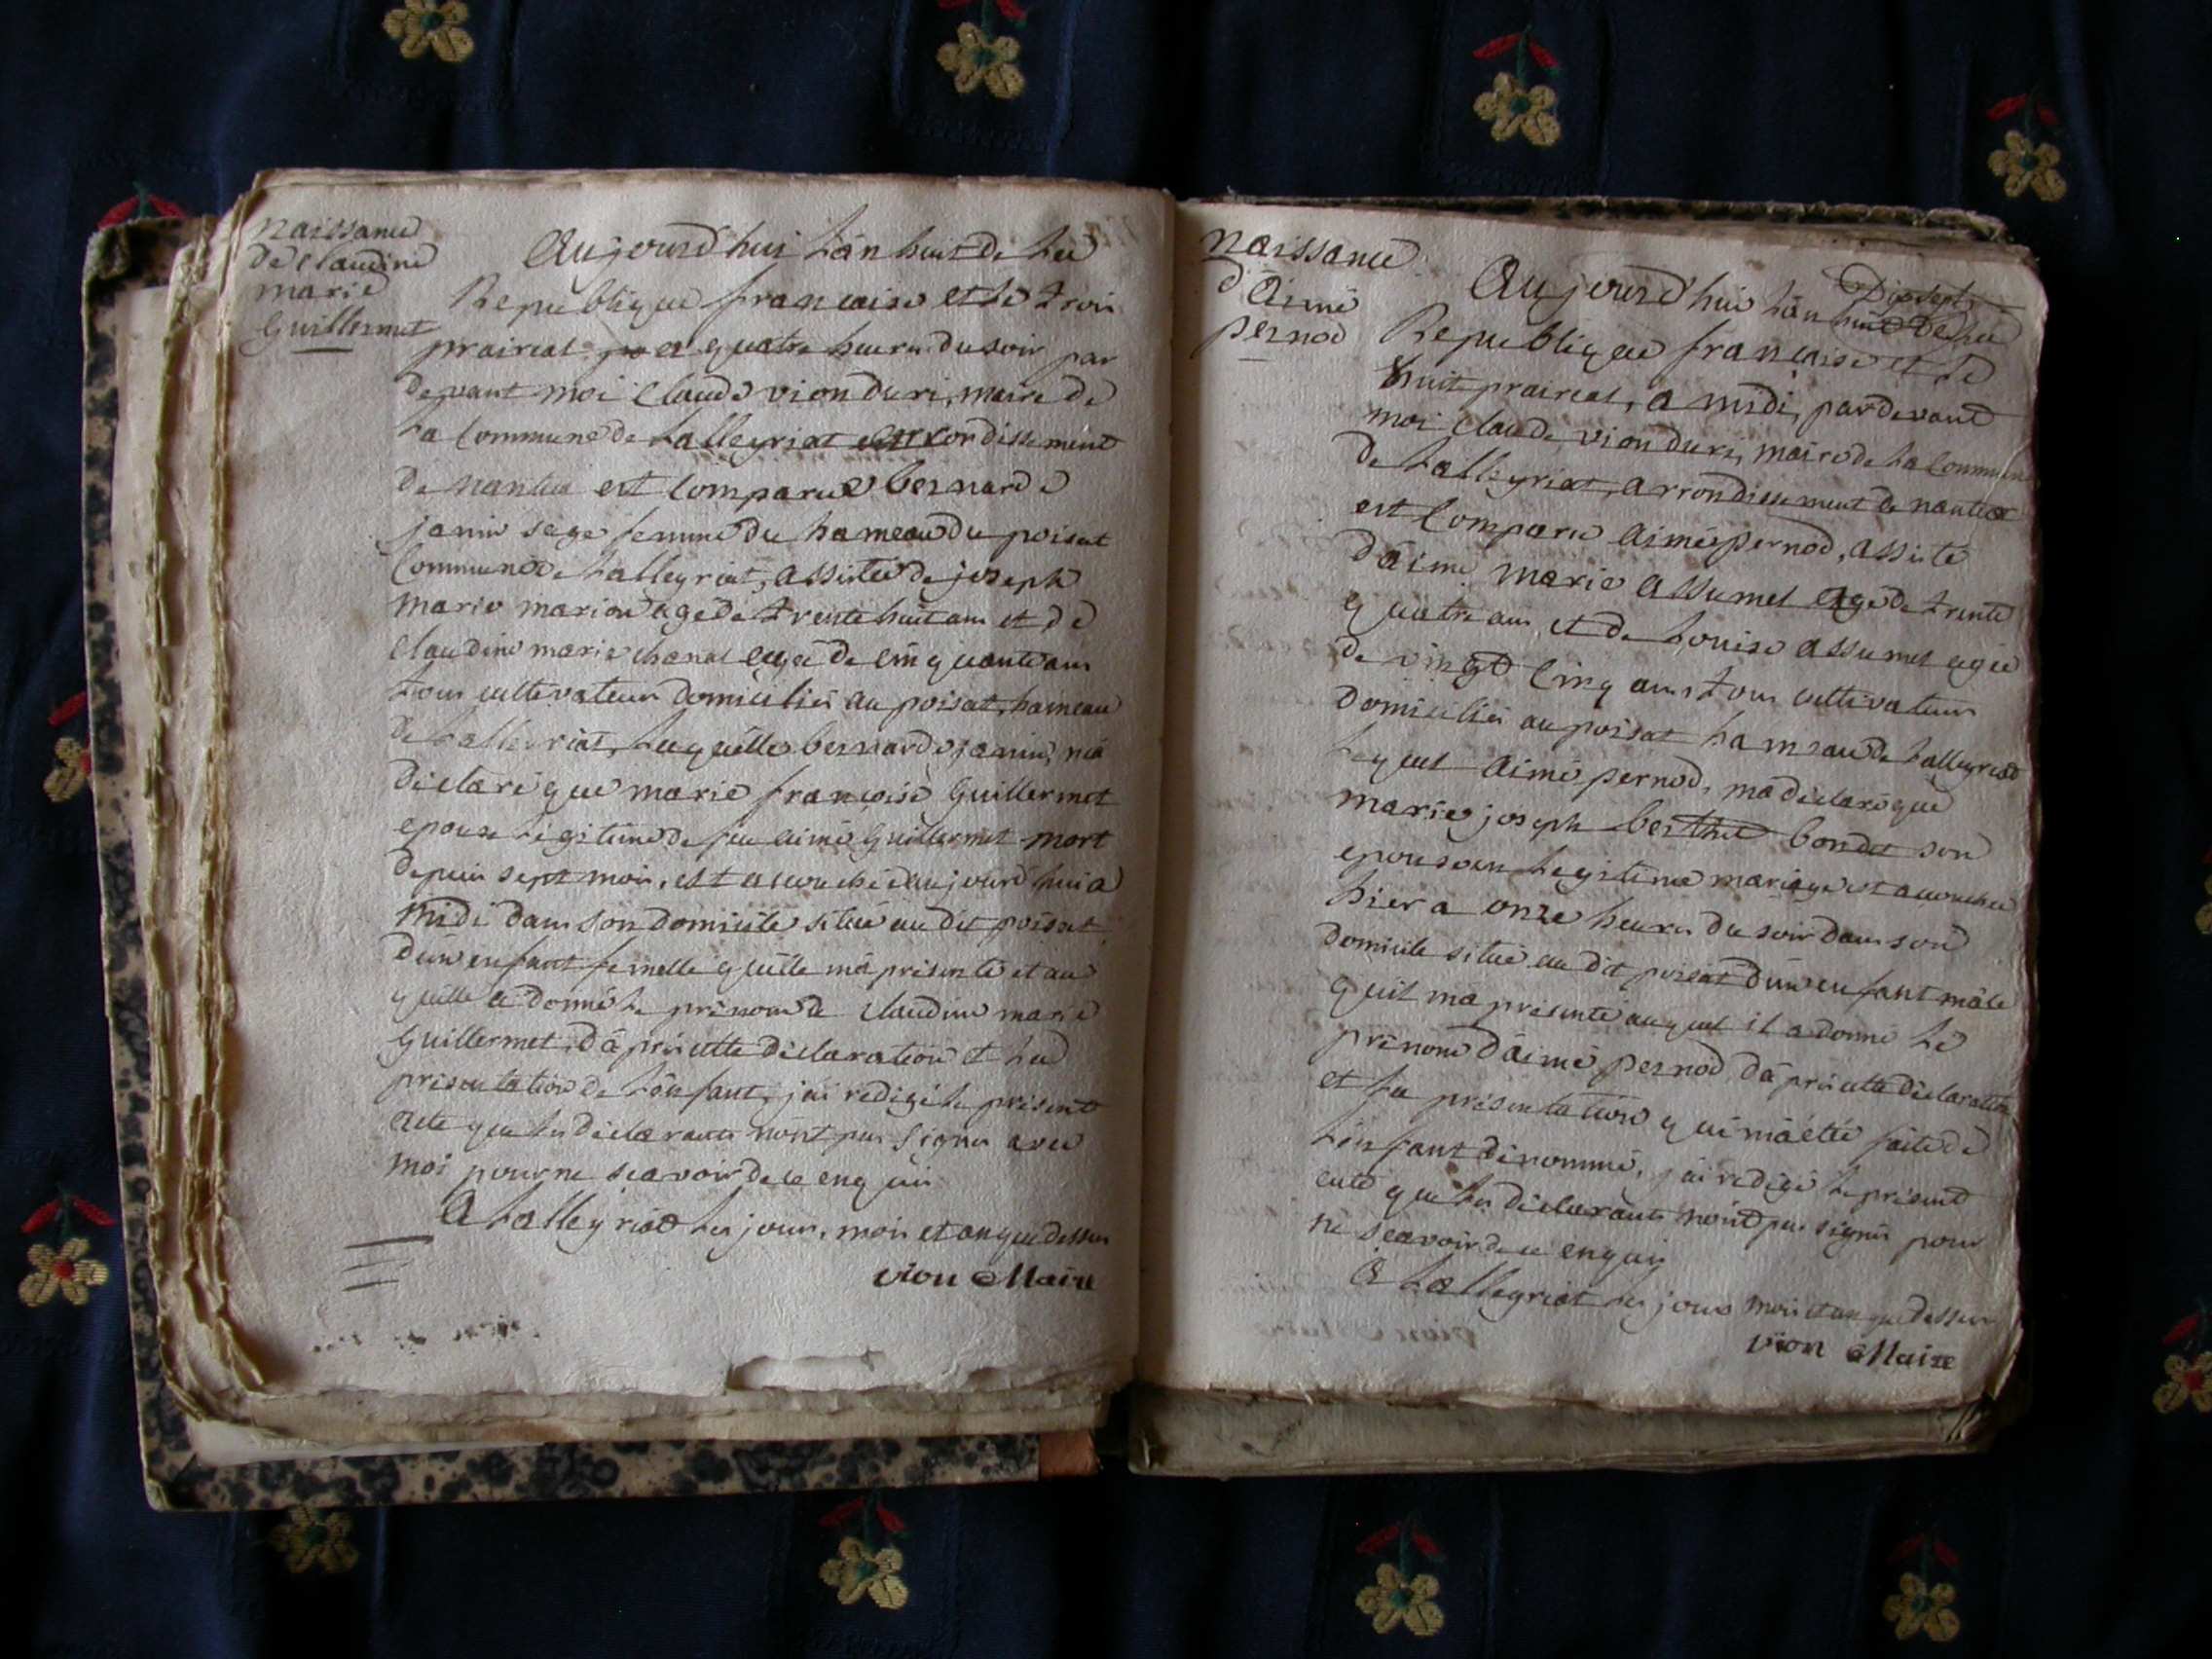 naissance
de claudine
marie
Guillermet
Aujourd'hui l'an huit de la
Republique francaise et le trois
prairial a quatre heures du soir par
devant moi Claude vion duri, maire de
la Commune de lalleyriat arrondissement
de nantua est Comparue bernarde
janin sage femme du hameau du poisat
Commune de lalleyriat, assistée de joseph
marie marion agé de trente huit ans et de
claudine marie chanal agée de cinquante ans
tous cultivateurs domiciliés au poisat, hameau
de lalleyriat, laquelle bernarde janin, m'a
déclaré que marie francoise Guillermet
epouse légitime de feu aimé Guillermet mort
depuis sept mois, est accouchée aujourd'hui a
midi dans son domicile situé au dit poisat
d'un enfant femelle qu'elle m'a présenté et au
quelle a donné le prénom de claudine marie
Guillermet, d'après cette déclaration et la
présentation de l'enfant, j'ai redigé le présent
acte que les déclarants n'ont pas signés avec
moi pour ne scavoir de ce enquis
A lalleyriat les jours, mois et an que dessus
vion Maire
naissance
d'aimé
pernod
Dixsept
Aujourd'hui l'an huit de la
Republique francaise et le
huit prairial, a midi, pardevant
moi Claude vion duri, maire de la Commune
de lalleyriat, arrondissement de nantua
est Comparu aimé pernod, assisté
d'aimé marie assumel agé de trente
quatre ans et de louise assumel agée
de vingt cinq ans tous cultivateurs
domiciliés au poisat hameau de lalleyriat
lequel aimé pernod, m'a déclaré que
marie joseph berthet bondet son
epouse en legitime mariage est accouchée
hier a onze heures du soir dans son
domicile situé au dit poisat d'un enfant mâle
qu'il m'a présenté auquel il a donné le
prénom d'aimé pernod, d'après cette déclaration
et la présentation qui m'a été faite de
l'enfant dénommé, j'ai redigé le présent
acte que les déclarants n'ont pas signés pour
ne scavoir de ce enquis
A lalleyriat les jours mois et an que dessus
vion Maire